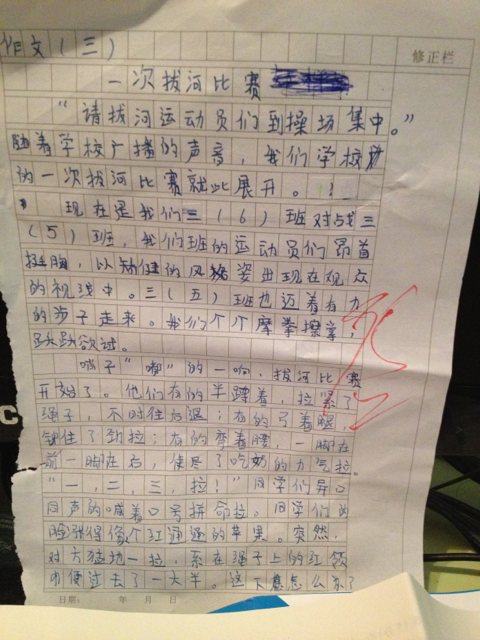 作文(三)
修正栏
一次拔河比赛
“请拔河运动员们到操场集中。”
随着学校广播的声音，我们学校
的一次拔河比赛就此展开。
现在是我们三(6)班对战三
(5)班，我们班的运动员们昂首
挺胸，以矫健的风姿出现在观众
的视线中。三(五)班也迈着有力
的步子走来。我们个个摩拳擦掌，
跃跃欲试。
哨子“嘟”的一响，拔河比赛
开始了。他们有的半蹲着，拉紧了
绳子，不时往后退；有的弓着腿，
住了劲拉；有的弯着腰，一脚在
前一脚在后，使尽了吃奶的力气拉。
“一，二，三，拉！”同学们异口
同声的喊着口号拼命拉。同学们的
脸张得像个红通通的苹果。突然，
对方猛地一拉，系在绳子上的红领
巾便过去了一大半。这下意怎么办
日期： 年 月 日